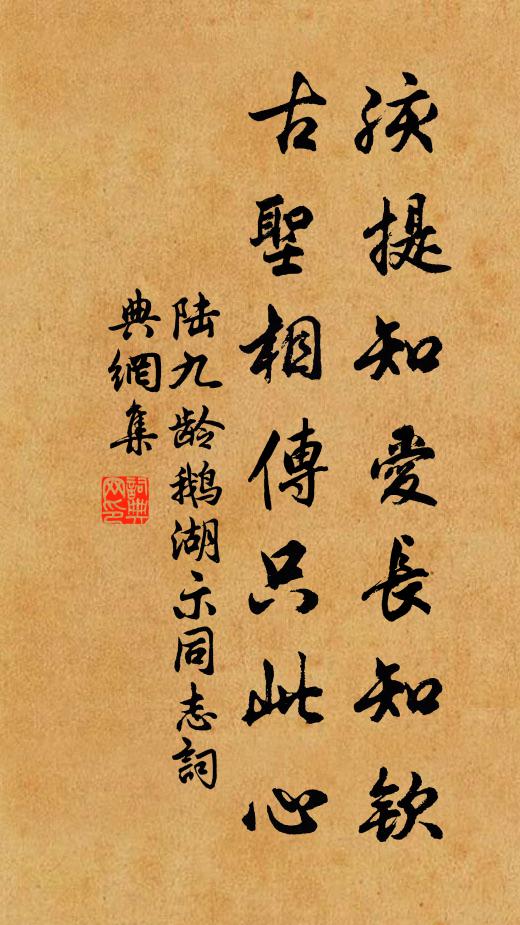 孩提知愛長知欽
古聖相傳只此心
陆九龄鵝湖示同志詞
典網集
詞典
网印